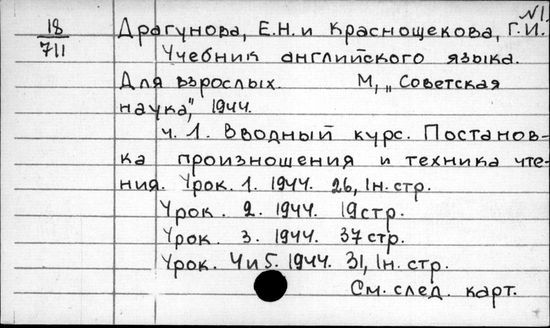 №1.
18
711
Драгунова, Е.Н. и Краснощекова, Г.И.
Учебник английского языка.
Для взрослых. М., „Советская
наука", 1944.
ч. 1. Вводный курс. Постанов-
ка произношения и техника чте-
ния. Урок. 1. 1944. 26, 1н. стр.
Урок. 2. 1944. 19 стр.
Урок. 3. 1944. 37 стр.
Урок. 4 и 5. 1944. 31, 1н. стр.
См. след. карт.